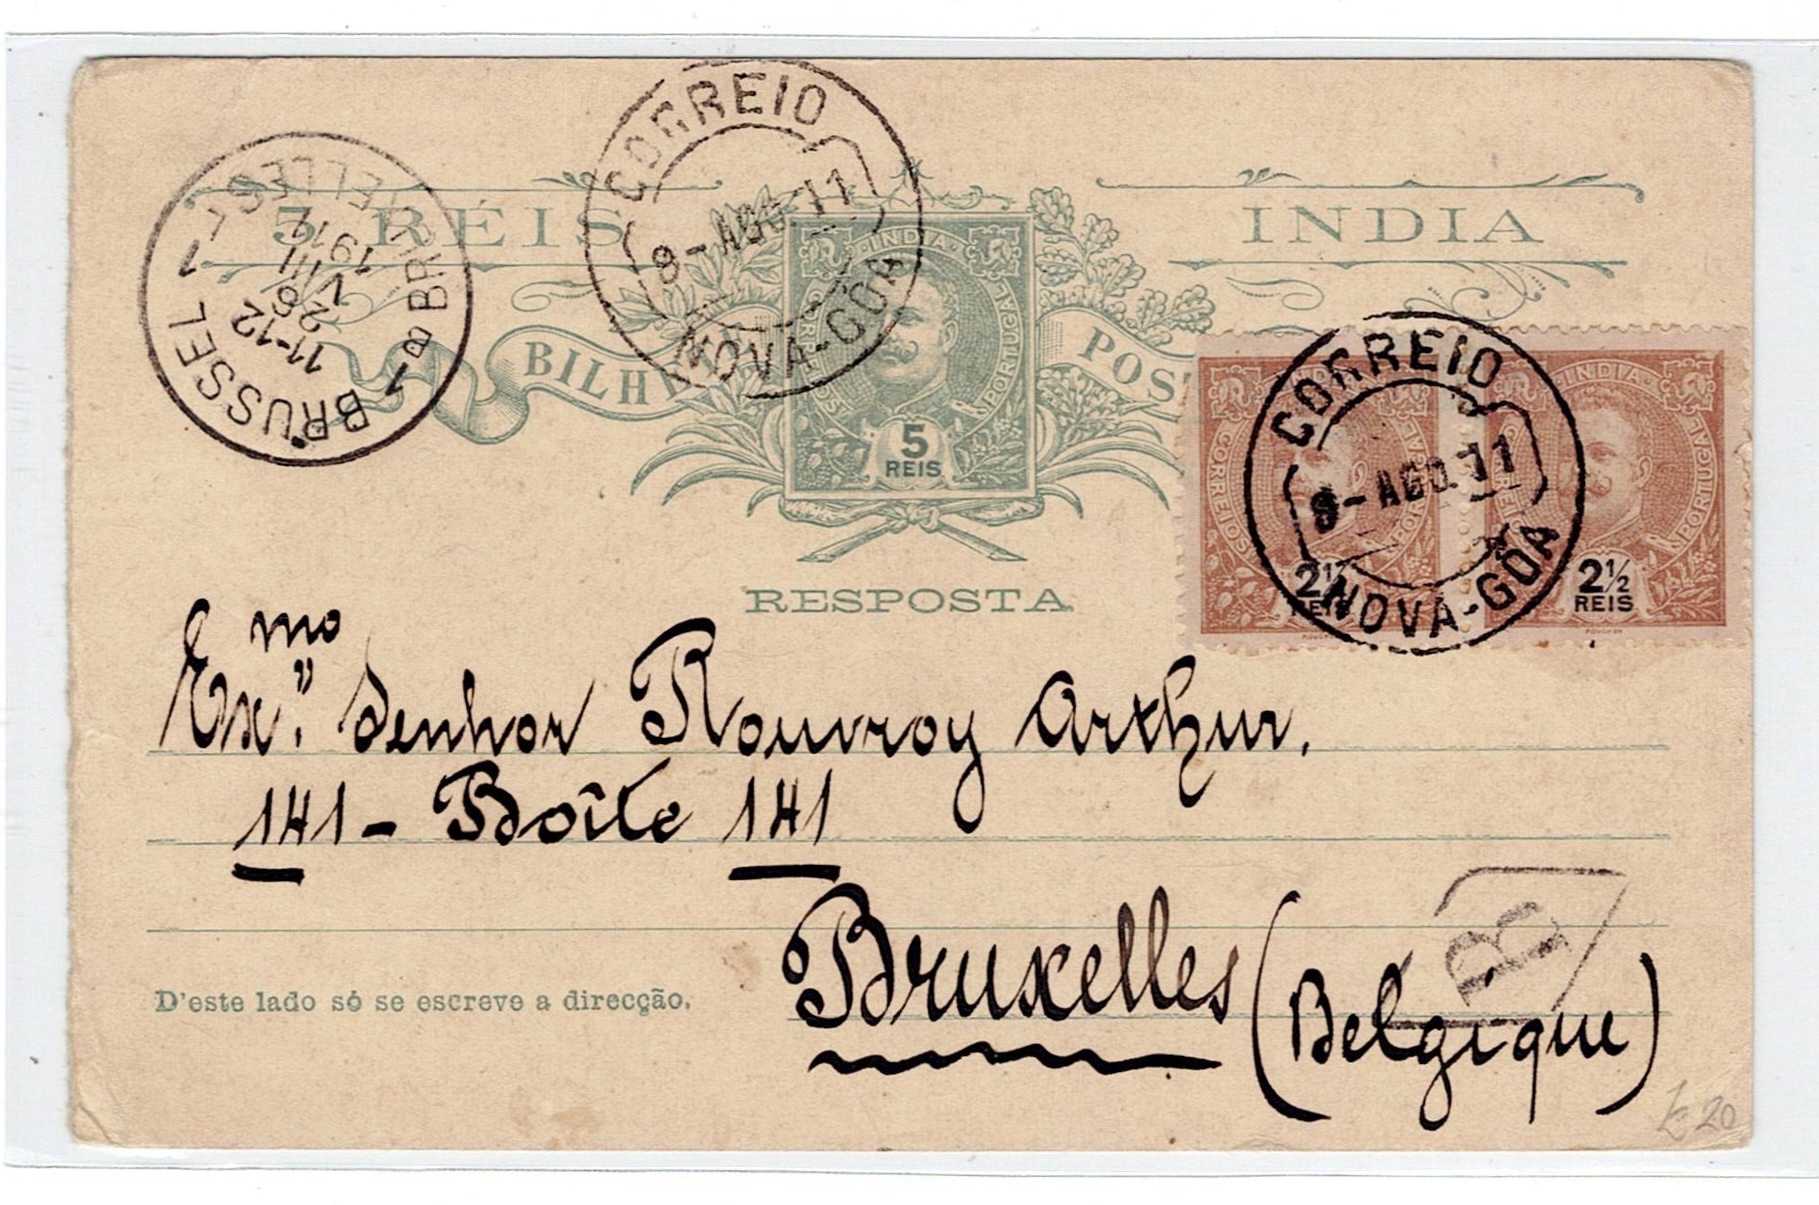 CORREIO
8-AGO.11
NOVA-GOA
BRUXELLES 1
1911
VIII
28
11-12
1 BRUSSEL 1
5 RÉIS
INDIA
BILHETE POSTAL
INDIA
CORREIOS PORTUGAL
5
REIS
CORREIO
8-AGO.11
NOVA-GOA
INDIA
CORREIOS PORTUGAL
2½
REIS
INDIA
CORREIOS PORTUGAL
2½
REIS
MOUCHON
RESPOSTA
Ex.mo Senhor Rouvroy Arthur.
141 - Boîte 141
Bruxelles (Belgique)
B
D'este lado só se escreve a direcção.
20